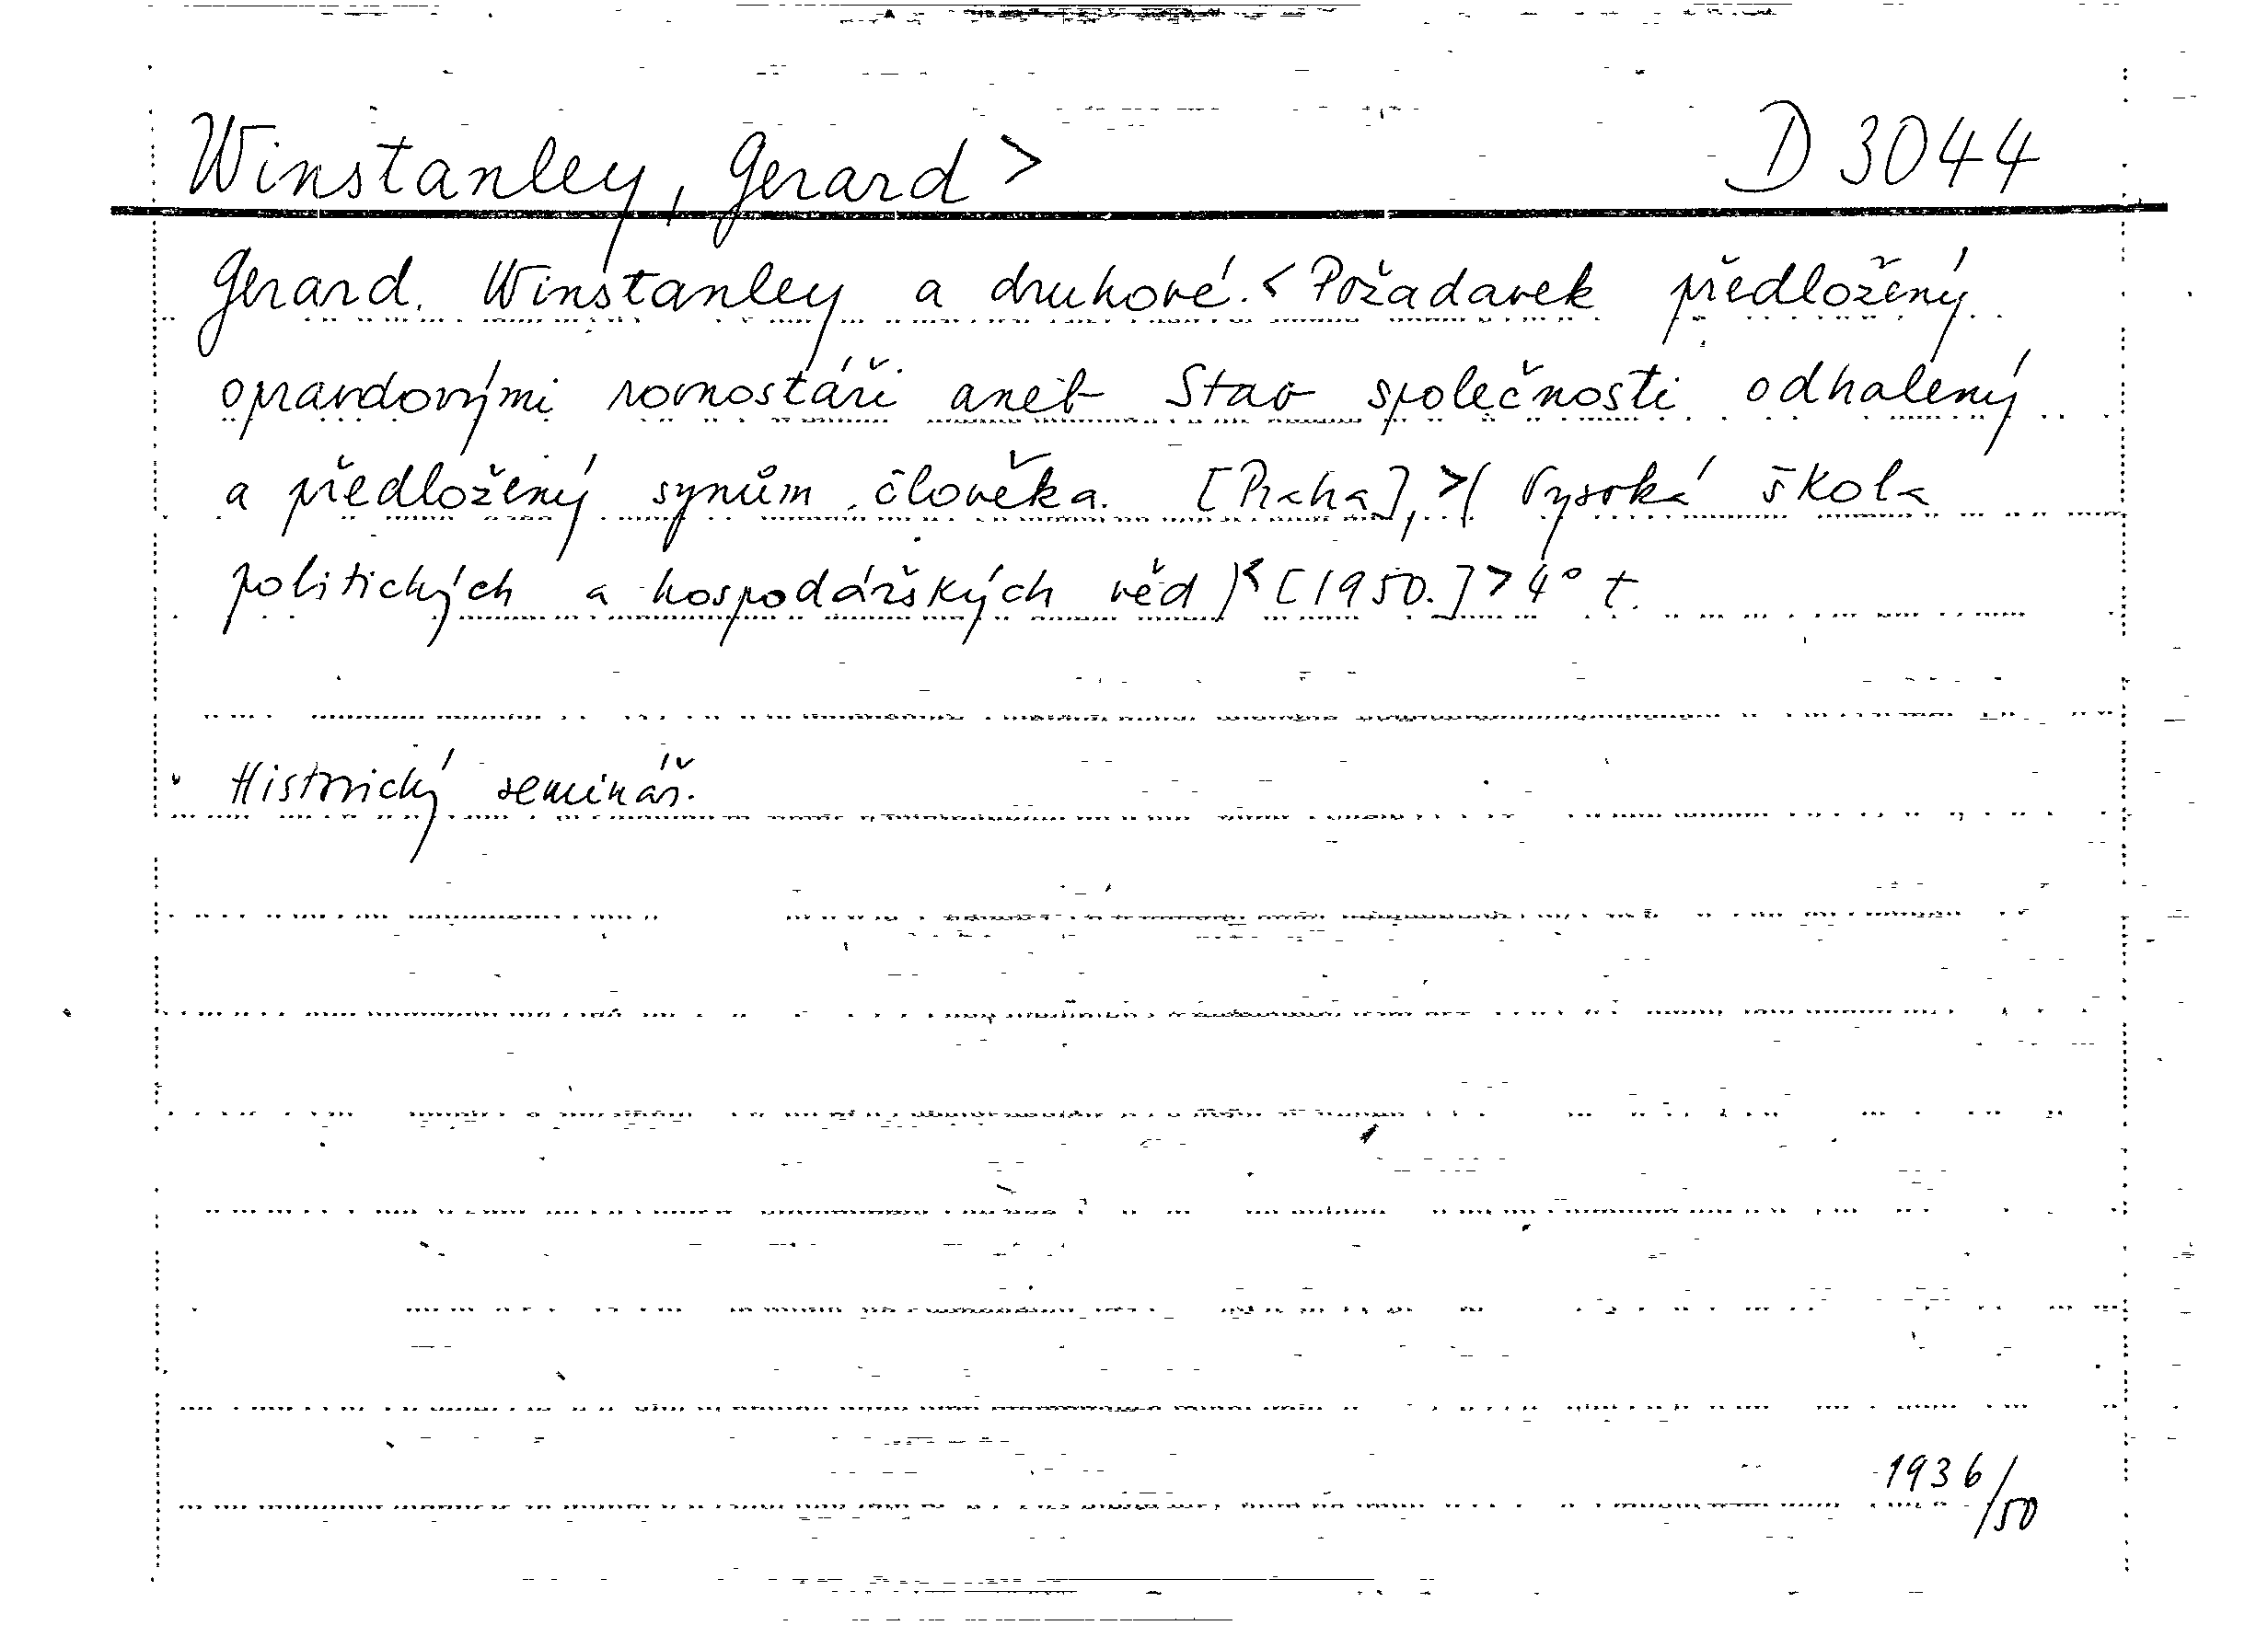 Winstanley, Gerard > D 3044
Gerard Winstanley a druhové. < Požadavek předložený
opravdovými rovnostáři aneb Stav společnosti odhalený
a předložený synům člověka. [Praha], >( Vysoká škola
politických a hospodářských věd )< [1950.] > 4° t.
Historický seminář.
1936/50